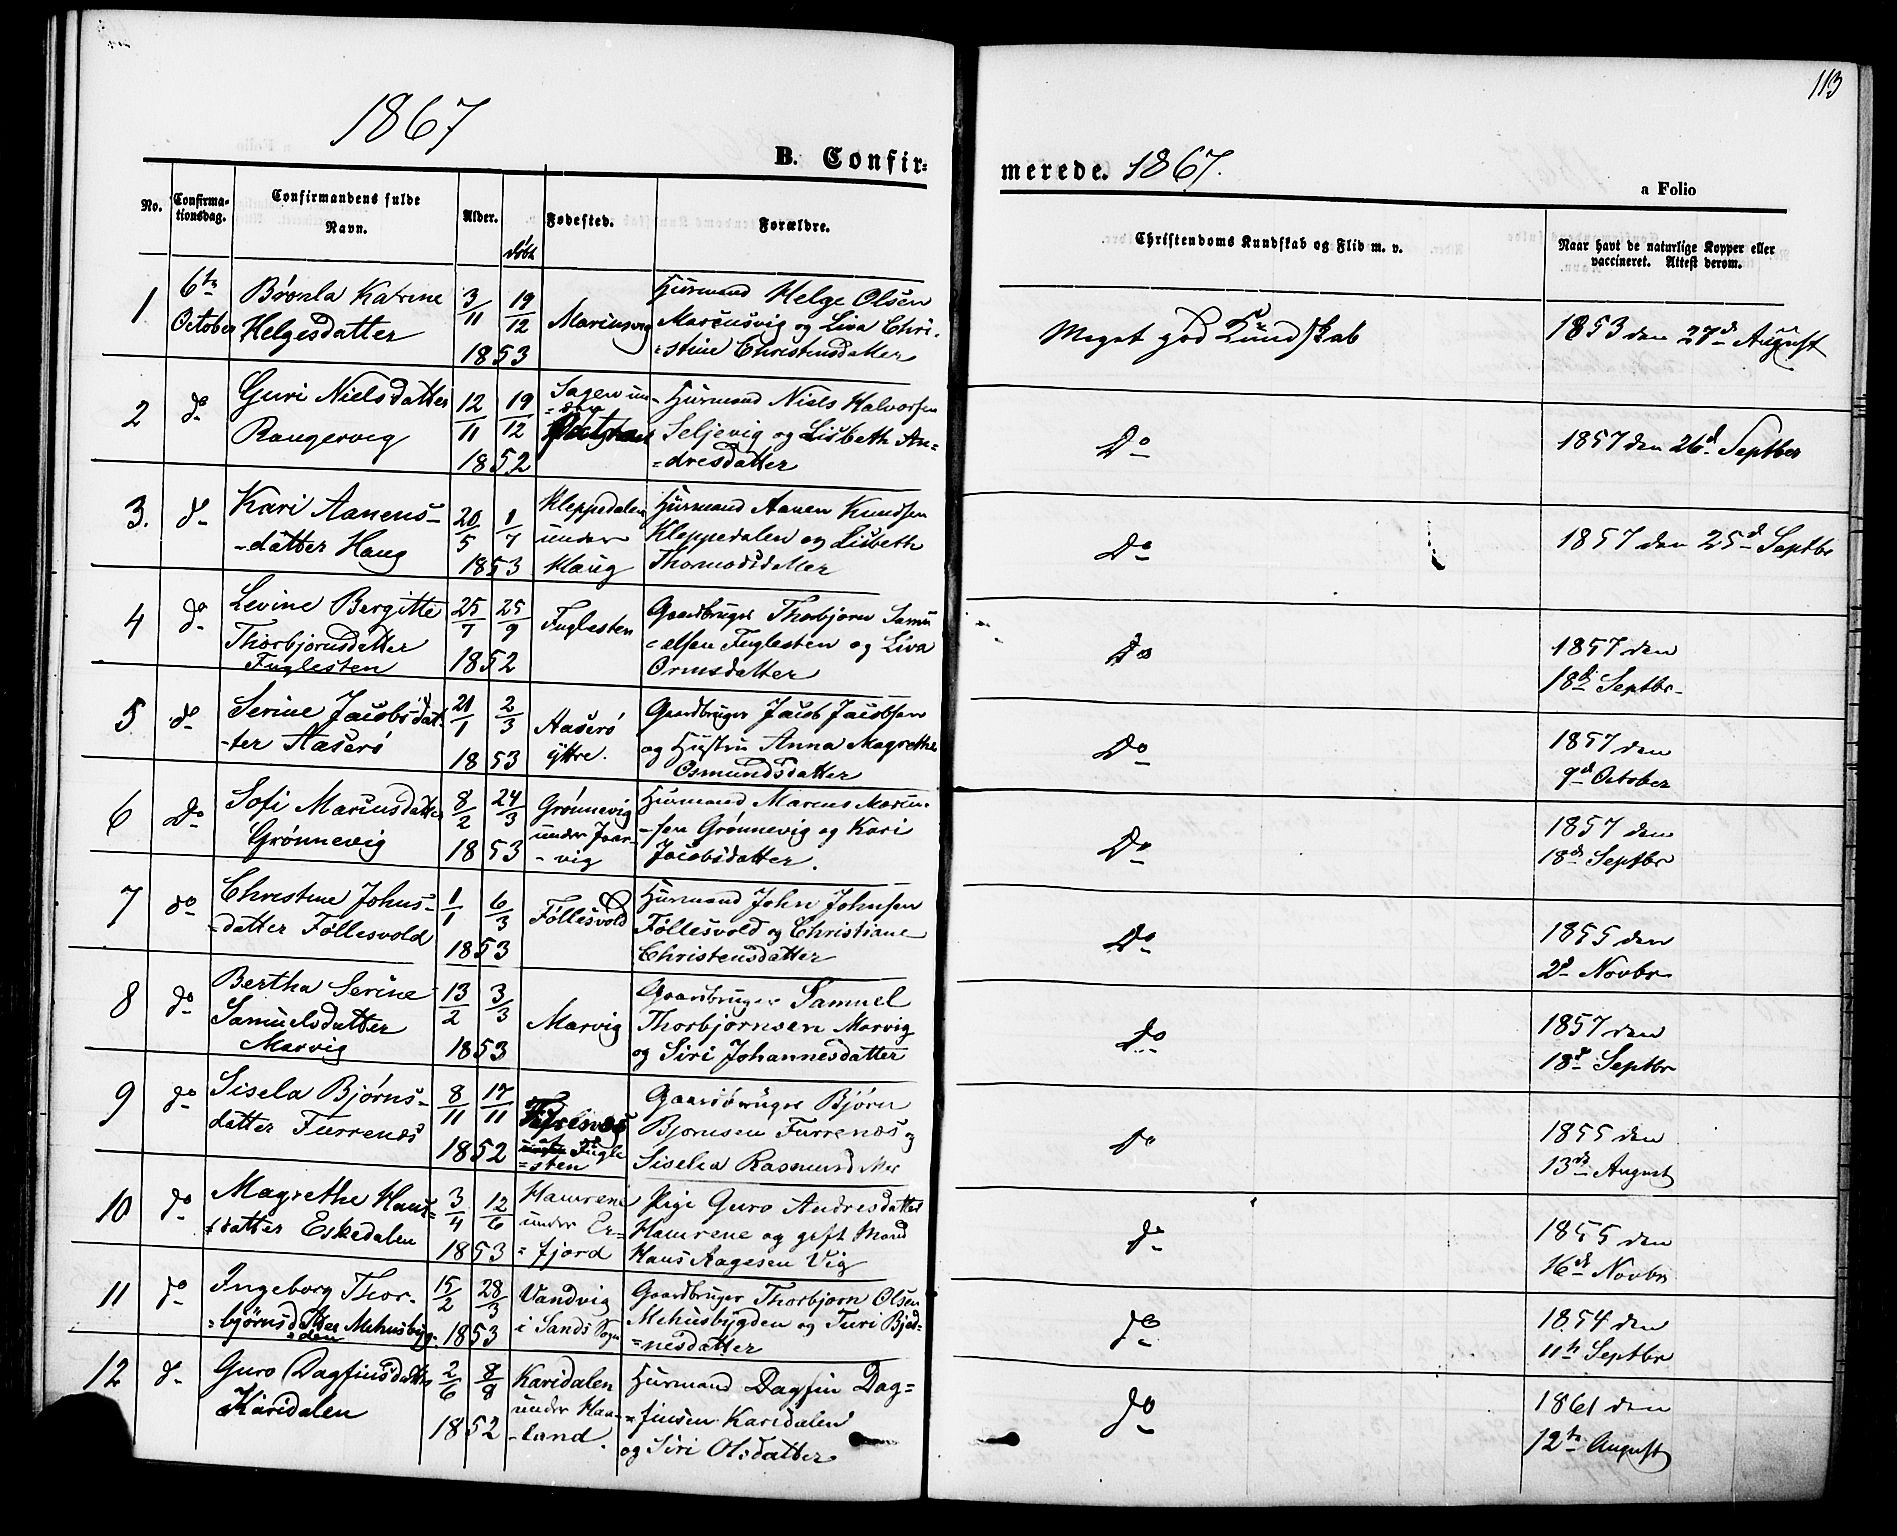 113
1867
B. Confir-
merede. 1867.
a Folio
No.
Confirma-
tionsdag.
Confirmandens fulde
Navn.
Alder.
døbt
Fødested.
Forældre.
Christendoms Kundskab og Flid m. v.
Naar havt de naturlige Kopper eller
vaccineret. Attest derom.
1
6te
October
Brønla Katrine
Helgesdatter
3/11
19/12
1853
Marcusvig
Huusmand Helge Olsen
Marcusvig og Liva Chri-
=stine Christensdatter
Meget god Kundskab
1853 den 27d August
2
do
Guri Nielsdatter
Rangervig
12/11
19/12
1852
Sagen un-
=der
Huusmand Niels Halvorsen
Seljevig og Lisbeth An-
=dresdatter
Do
1857 den 26d Septber
3.
do
Kari Aanens-
-datter Haug
20/5
1/7
1853
Kleppedalen
under
Haug
Huusmand Aanen Knudsen
Kleppedalen og Lisbeth
Thormodsdatter
Do
1857 den 25d Septbr
4
do
Levine Bergitte
Thorbjørnsdatter
Fuglesten
25/7
25/9
1852
Fuglesten
Gaardbruger Thorbjørn Samu
=elsen Fuglesten og Liva
Ormsdatter
Do
1857 den
18de Septbr
5
do
Serine Jacobsdat-
-ter Aaserø
21/1
2/3
1853
Aaserø
yttre.
Gaardbruger Jacob Jacobsen
og Hustru Anna Magrethe
Osmundsdatter
Do
1857 den
9d October
6
Do
Sofi Mariusdatter
Grønnevig
8/2
24/3
1853
Grønnevig
under Jaar-
-vig
Huusmand Marcus Marcu-
-sen Grønnevig og Kari
Jacobsdatter.
Do
1857 den
18de Septbr
7
do
Christine Johns-
=datter Føllesvold
1/1
6/3
1853
Føllesvold
Huusmand John Johnsen
Føllesvold og Christiane
Christensdatter
Do
1855 den
2d Novbr
8
do
Bertha Serine
Samuelsdatter
Marvig
13/2
3/3
1853
Marvig
Gaardbruger Samuel
Thorbjørnsen Marvig
og Siri Johannesdatter
do
1857 den
18d Septbr
9
do
Sisela Bjørns-
datter Furrenes
8/11
17/11
1852
Fugle
=sten
Gaardbruger Bjørn
Bjørnsen Furrenes og
Siselia Rasmusd
do
1855 den
13de August
10
do
Magrethe Hans-
datter Eskedalen
3/4
12/6
1853
Hamrene
under Er-
=fjord
Pige Guro Andresdatter
Hamrene og gift Mand
Hans Aagesen Vig
do
1855 den
16de Novbr
11
do
Ingeborg Thor-
=bjørnsdatter Mehusbyg-
=den
15/2
28/3
1853
Vandvig
i Sands Sogn
Gaardbruger Thorbjørn Olsen
Mehusbygden og Turi Bjød-
=nesdatter
do
1854 den
11te Septbr
12
do
Guro Dagfinsdatter
Karidalen
2/6
8/8
1852
Karidalen
under Haa-
-land.
Huusmand Dagfin Dag=
=finsen Karidalen
og Siri Olsdatter
do
1861 den
12te August